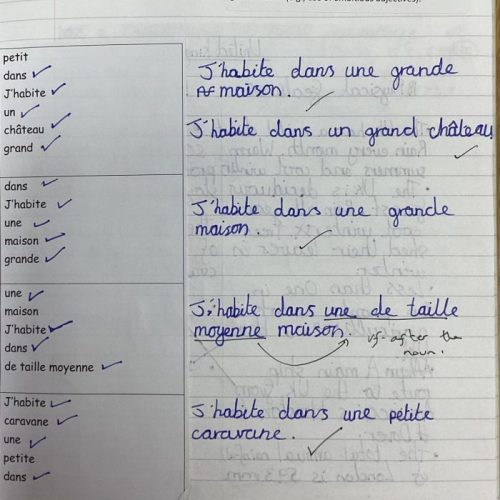 petit
dans
J'habite
un
château
grand
J'habite dans une grande
maison.
J'habite dans un grand château!
dans
J'habite
une
maison
grande
J'habite dans une grande
maison.
une
maison
J'habite
dans
de taille moyenne
J'habite dans une de taille
moyenne maison.
after the
noun.
J'habite
caravane
une
petite
dans
J'habite dans une petite
caravane.